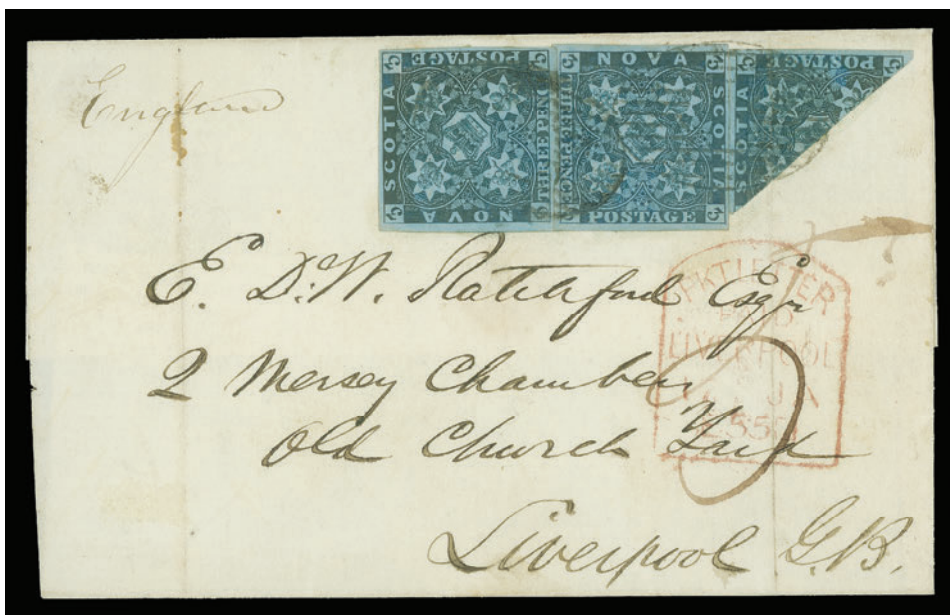 England
POSTAGE
SCOTIA
THREE PENCE
NOVA
NOVA
THREE PENCE
SCOTIA
POSTAGE
POSTAGE
SCOTIA
E. D. W. Ratchford Esqr
2 Mersey Chambers
Old Church Yard
Liverpool G.B.
PKT LETTER
PAID
LIVERPOOL
JA